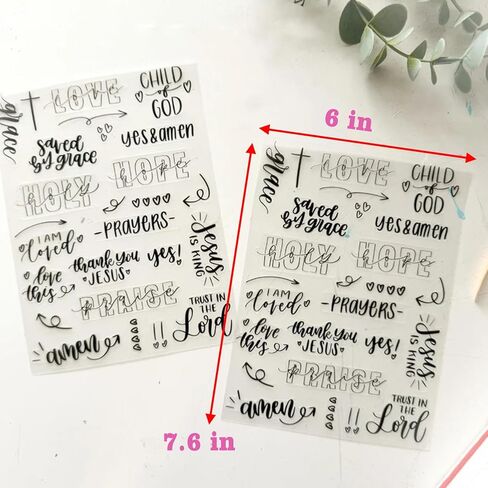 grace
LOVE
CHILD
of
GOD
saved
by grace
yes & amen
HOLY
HOPE
I AM
loved
-PRAYERS-
Jesus
IS KING
love
this
thank you
JESUS
yes!
PRAISE
TRUST IN
THE
Lord
amen
!!
6 in
grace
LOVE
CHILD
of
GOD
saved
by grace
yes & amen
HOLY
HOPE
I AM
loved
-PRAYERS-
Jesus
IS KING
love
this
thank you
JESUS
yes!
PRAISE
TRUST IN
THE
Lord
amen
!!
7.6 in